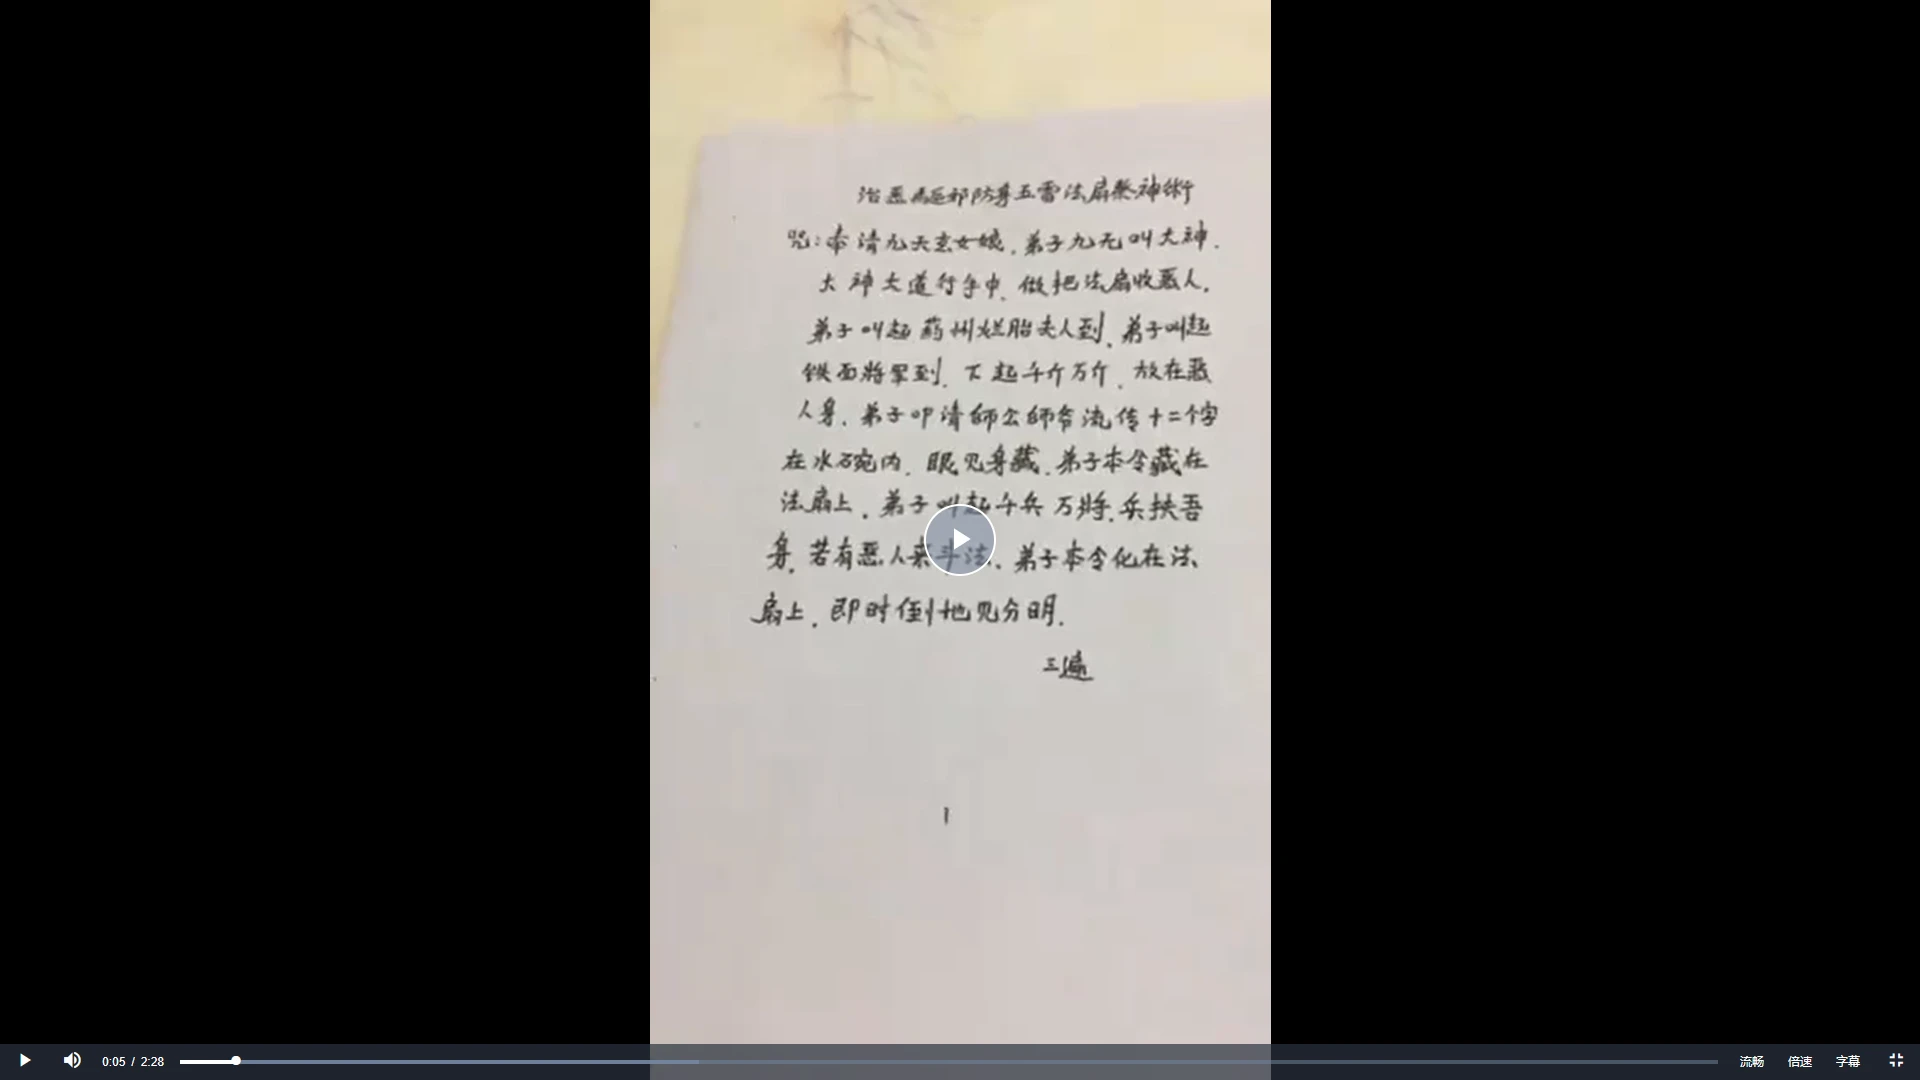 治恶驱邪防身五雷法扇祭神術
咒:奉请九天玄女娘.弟子九天叫大神.
大神大道行手中.做把法扇收恶人.
弟子叫起药州烂胎夫人到.弟子叫起
铁面將軍到.下起千斤万斤.放在恶
人身.弟子叩请師公師爷流传十二个字
在水碗内.眼见身藏.弟子本令藏在
法扇上.弟子叫起千兵万將.兵扶吾
身.若有恶人来斗法.弟子本令化在法
扇上.即时倒地见分明.
三遍
1
0:05 / 2:28
流畅 倍速 字幕